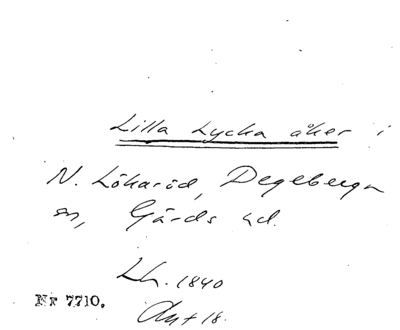 Lilla Lycka åker i
N. Lökaröd, Degeberga
sn, Gärds hd.
Lh. 1840
Akt 18.
Nr 7710.